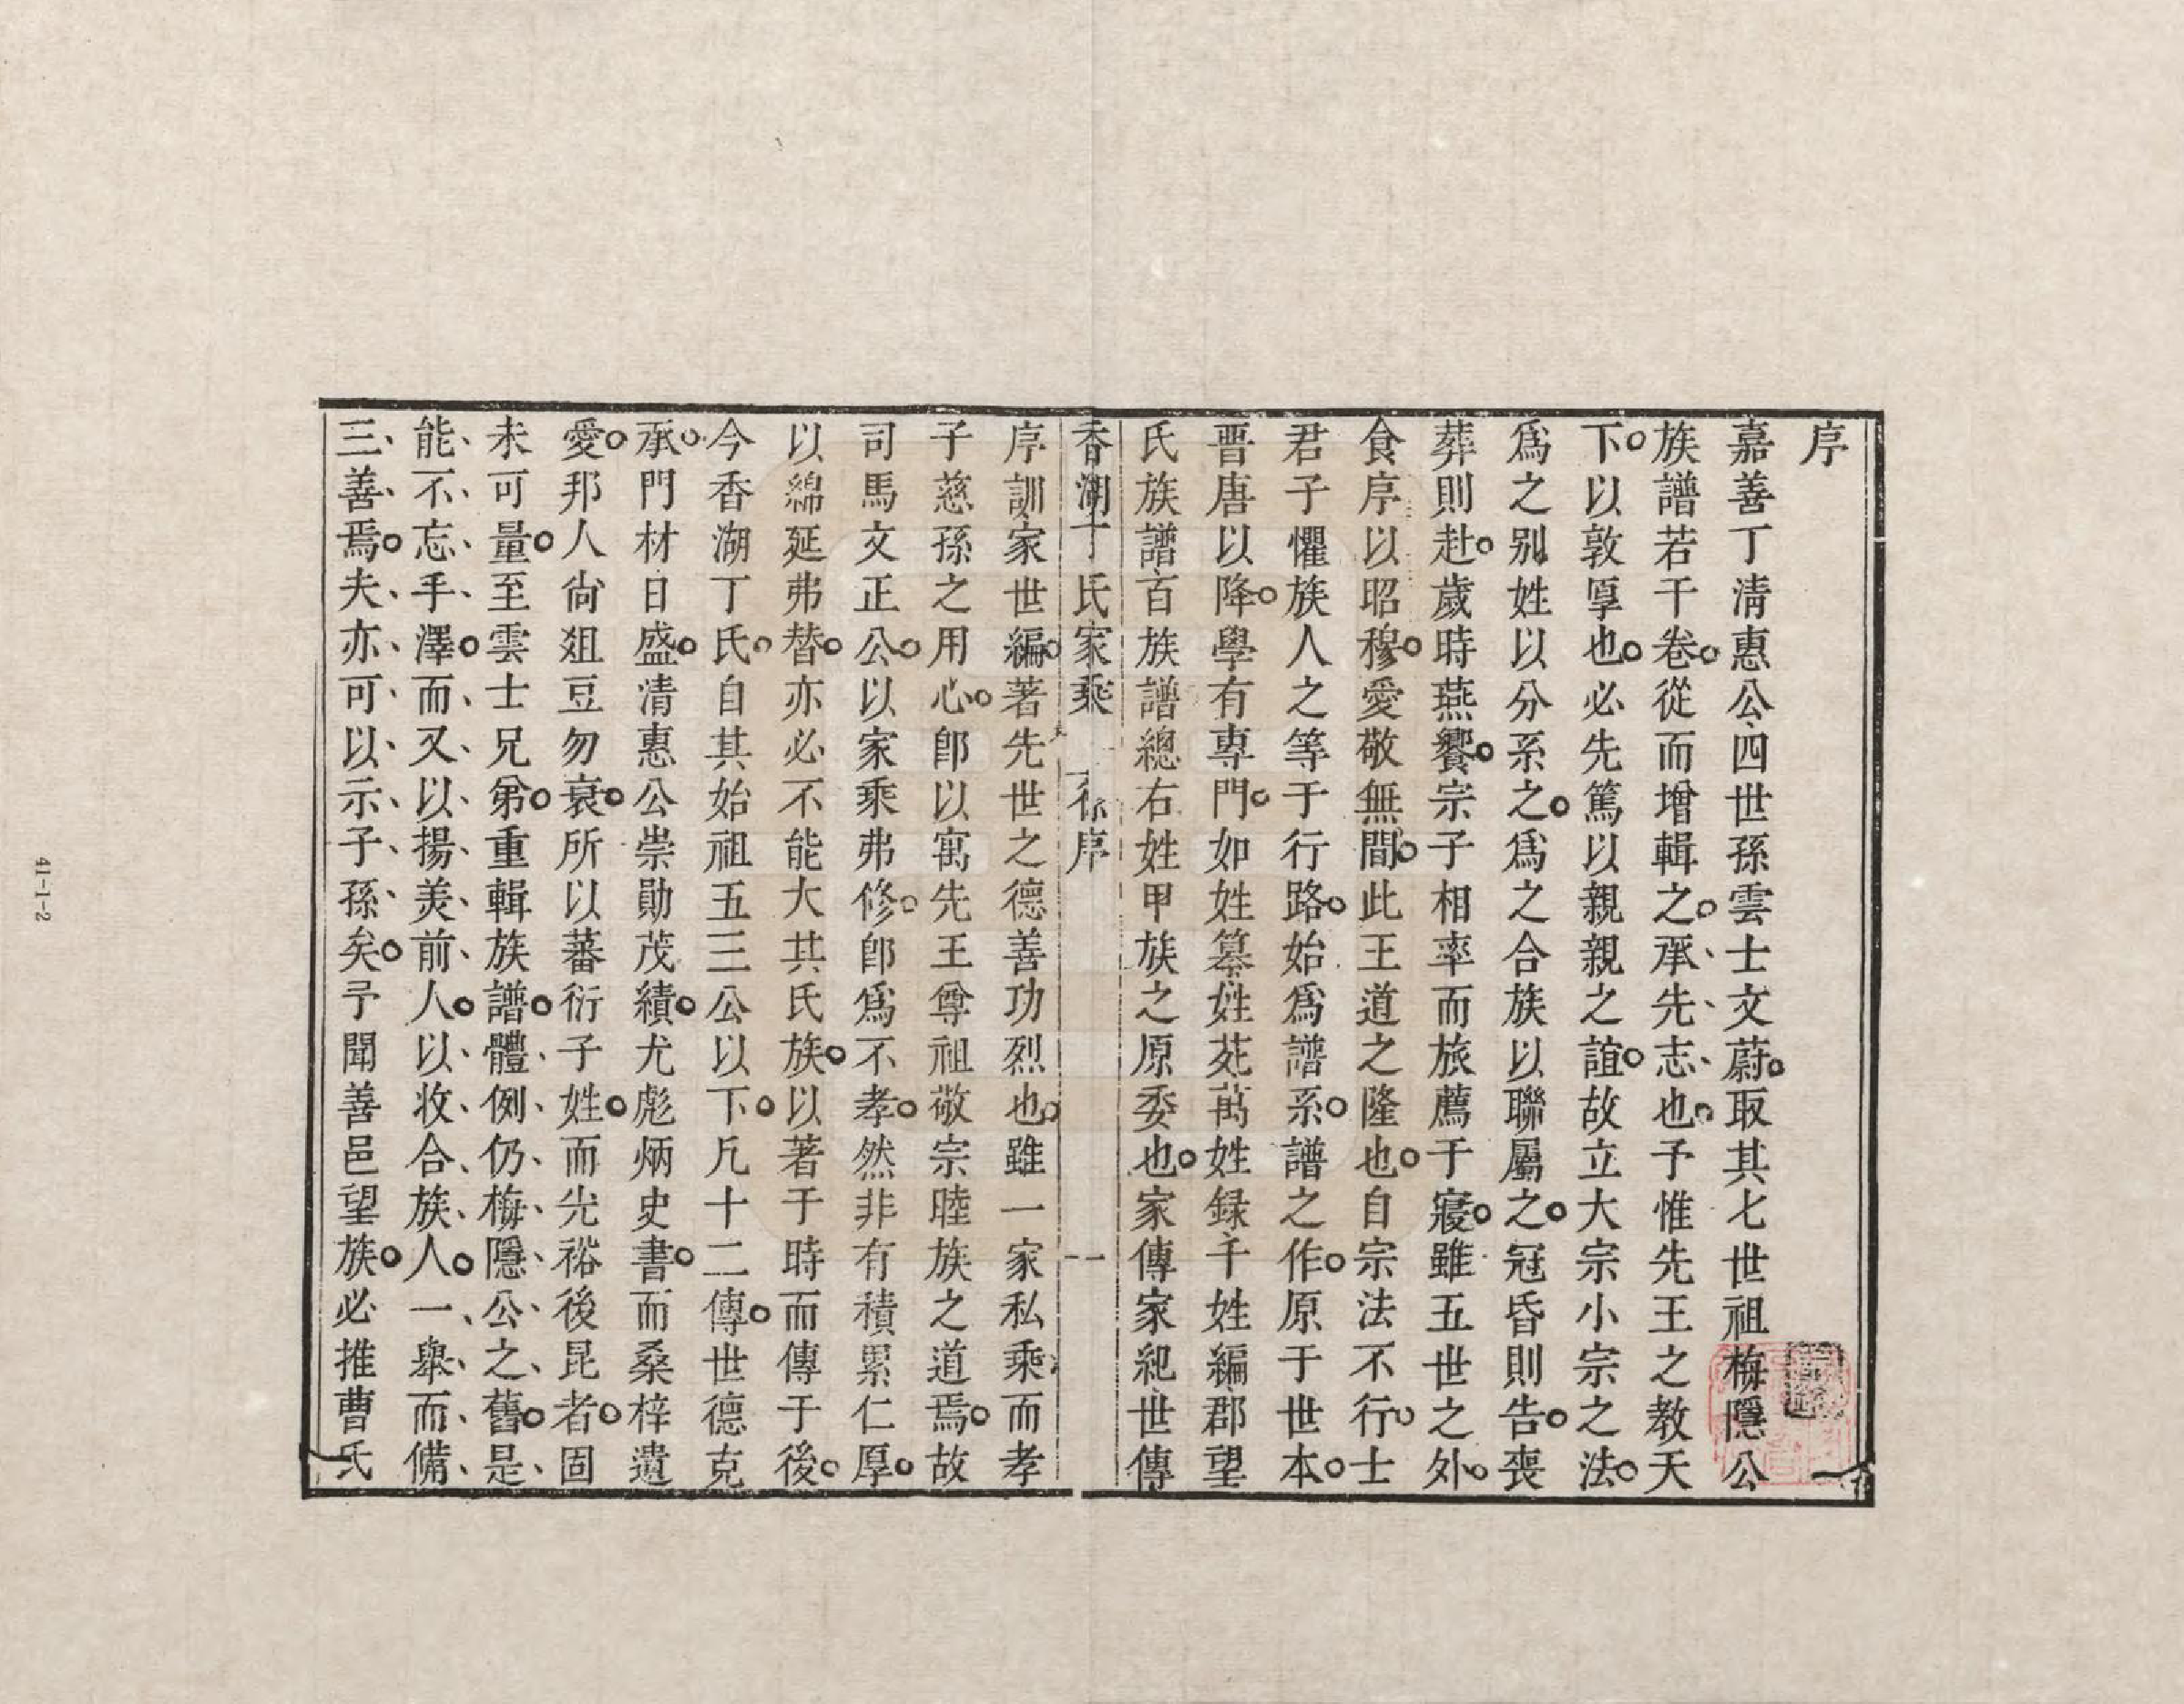 序
嘉善丁清惠公四世孫雲士文蔚。取其七世祖梅隱公
族譜若干卷。從而增輯之。承先志也。予惟先王之教天
下。以敦厚也。必先篤以親親之誼。故立大宗小宗之法。
爲之别姓以分系之。爲之合族以聯屬之。冠昏則告。喪
葬則赴。歲時燕饗。宗子相率而旅薦于寢。雖五世之外。
食序以昭穆。愛敬無間。此王道之隆也。自宗法不行。士
君子懼族人之等于行路。始爲譜系。譜之作。原于世本。
晋唐以降。學有専門。如姓纂、姓苑、萬姓録、千姓編、郡望
氏族譜、百族譜、總右姓甲族之原委也。家傳家紀世傳
香湖丁氏家乘 徐序 一
序訓、家世編。著先世之德善功烈也。雖一家私乘、而孝
子慈孫之用心。卽以寓先王尊祖敬宗睦族之道焉。故
司馬文正公。以家乘弗修。卽爲不孝。然非有積累仁厚。
以綿延弗替。亦必不能大其氏族。以著于時而傳于後。
今香湖丁氏。自其始祖五三公以下。凡十二傳。世德克
承。門材日盛。清惠公崇勛茂績。尤彪炳史書。而桑梓遺
愛。邦人尙俎豆勿衰。所以蕃衍子姓。而光裕後昆者。固
未可量。至雲士兄弟。重輯族譜。體例仍梅隱公之舊。是
能不忘手澤。而又以揚美前人。以收合族人。一舉而備
三善焉。夫亦可以示子孫矣。予聞善邑望族。必推曹氏
41-1-2